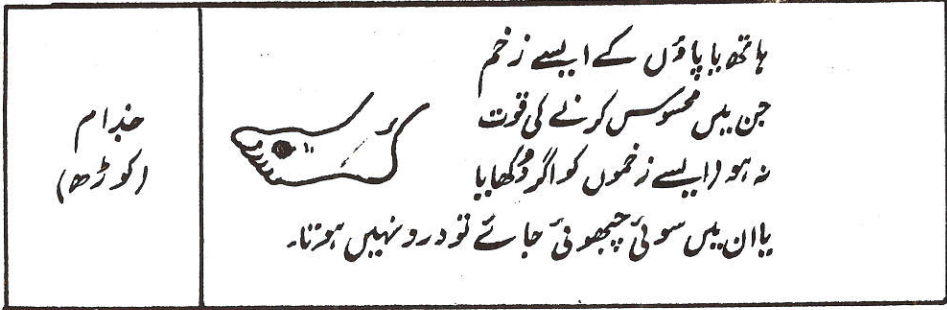 ہاتھ یا پاؤں کے ایسے زخم
جن میں محسوس کرنے کی قوت
نہ ہو (ایسے زخموں کو اگر دُکھایا
یا ان میں سوئی چبھوئی جائے تو درد نہیں ہوتا۔
جذام
(کوڑھ)